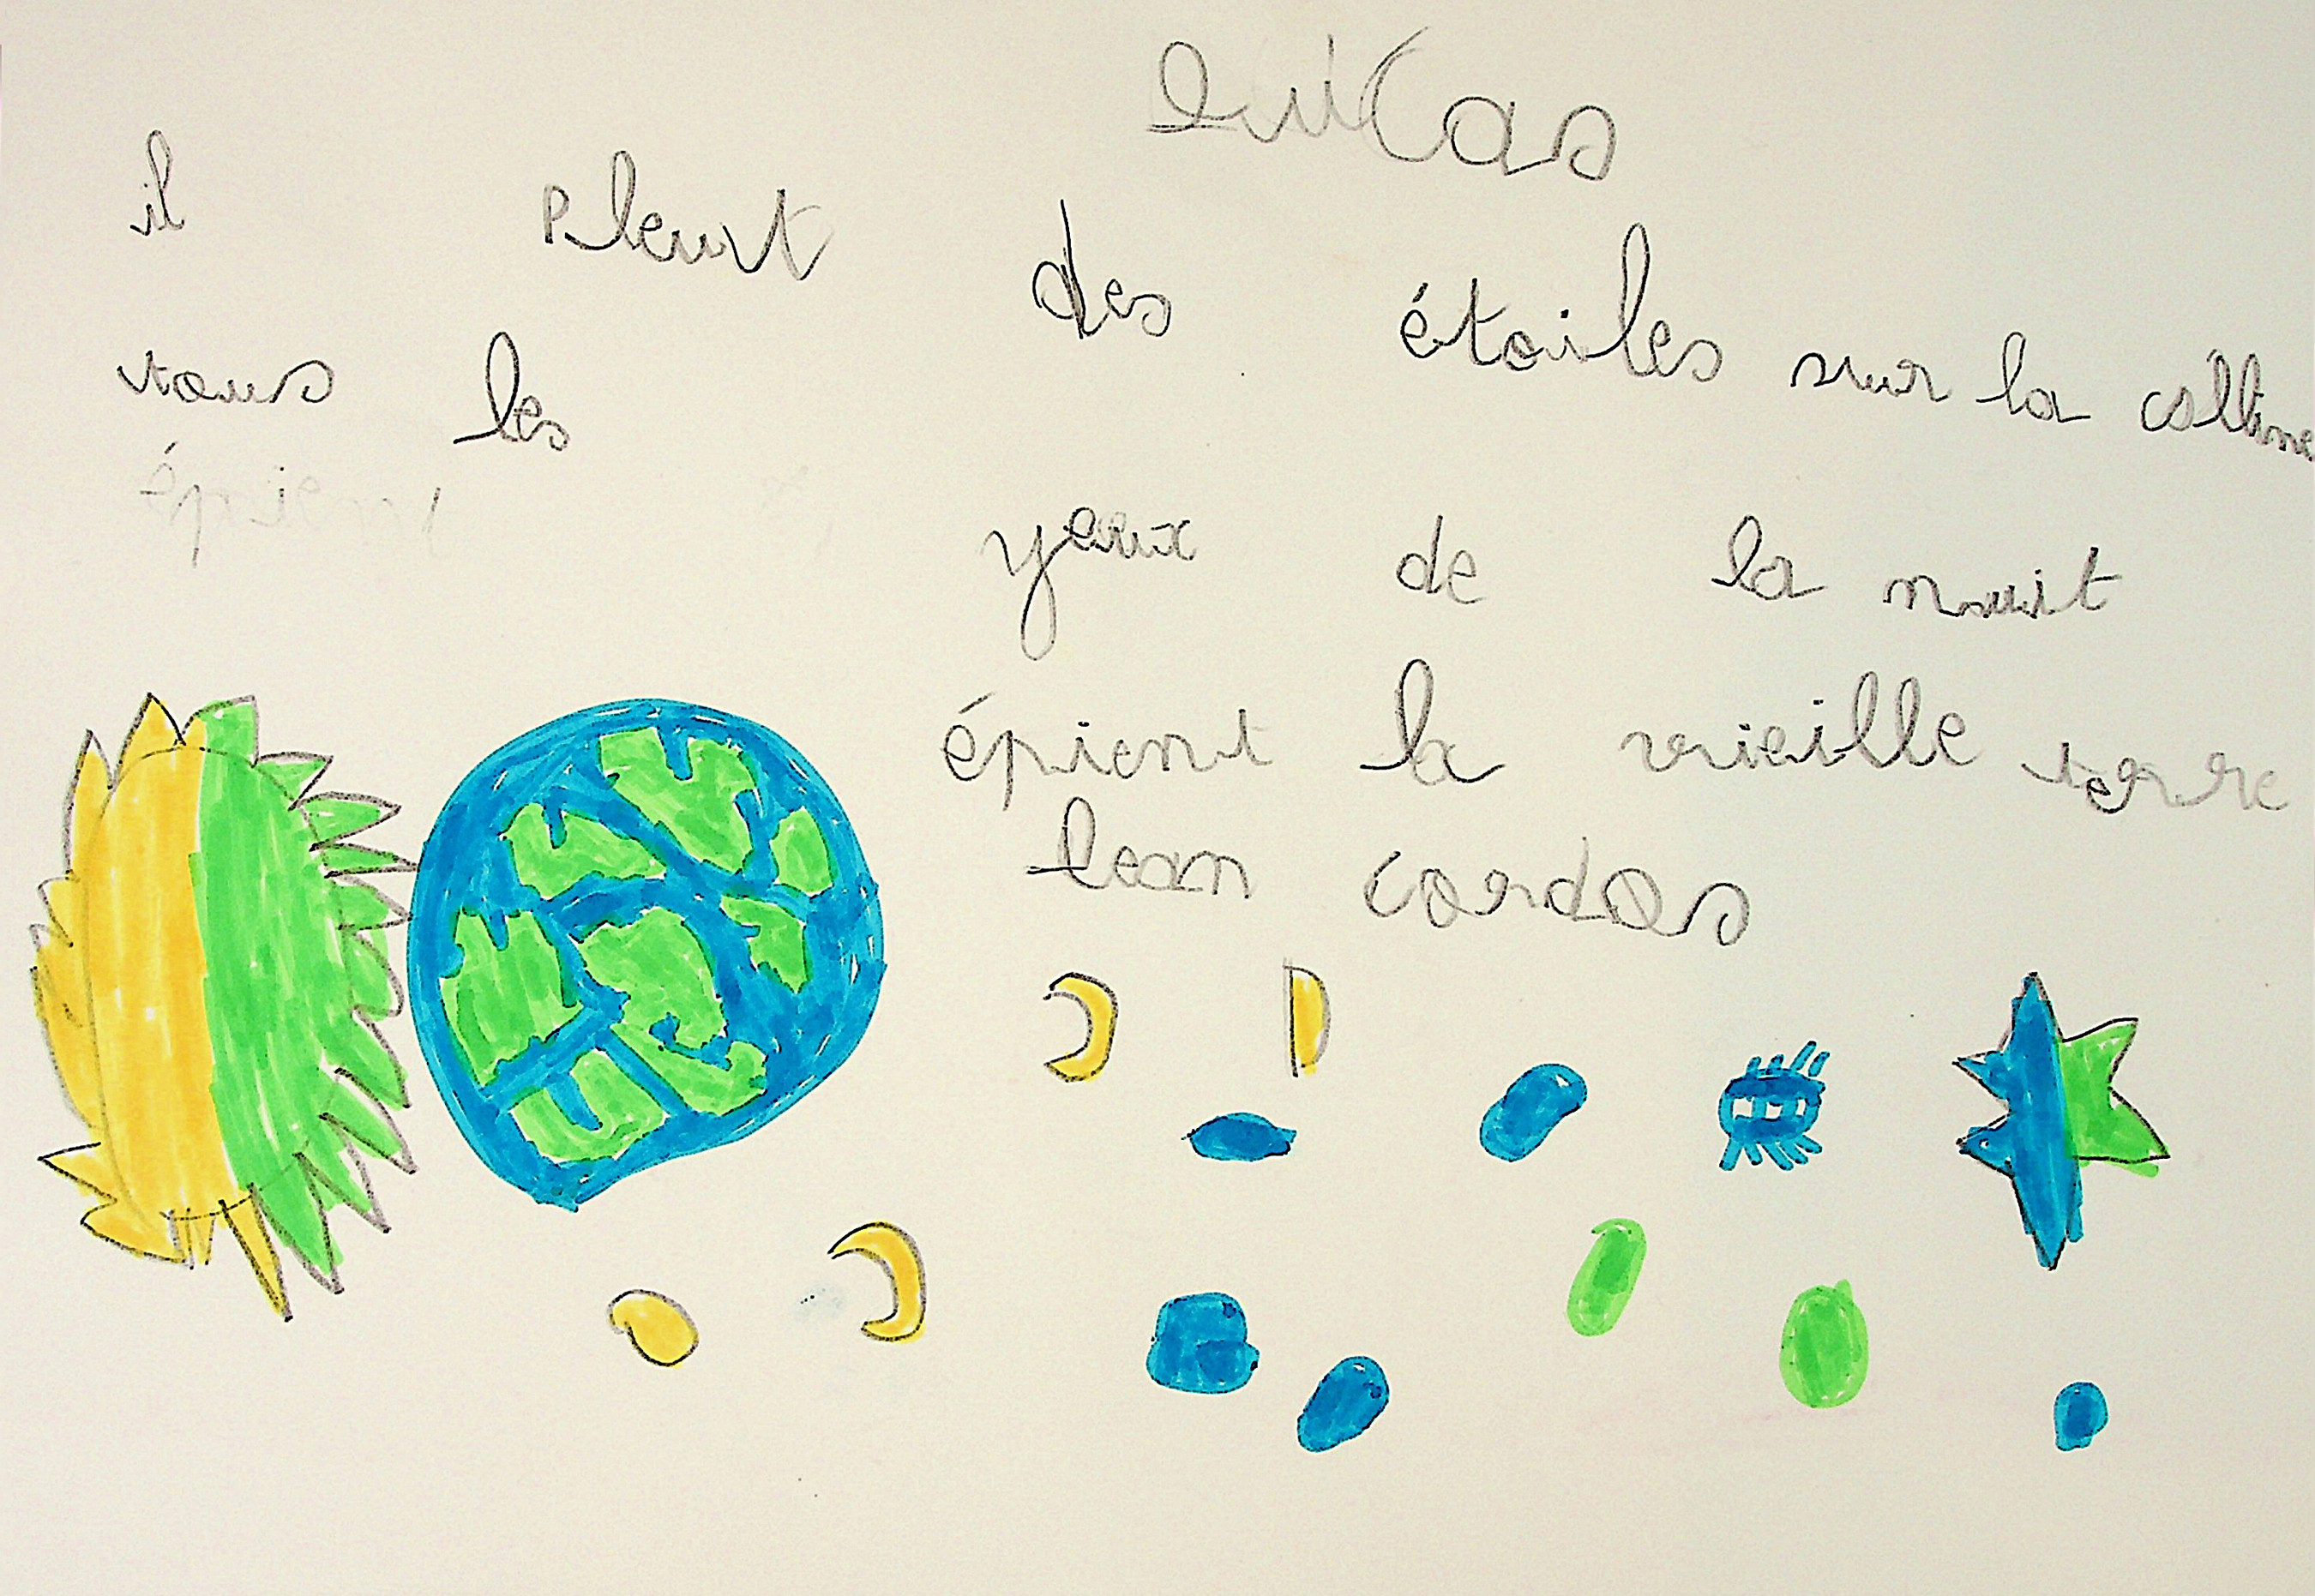 lucas
il pleut des étoiles sur la colline
tous les
épient
yeux de la nuit
épient la vieille terre
lean cordas